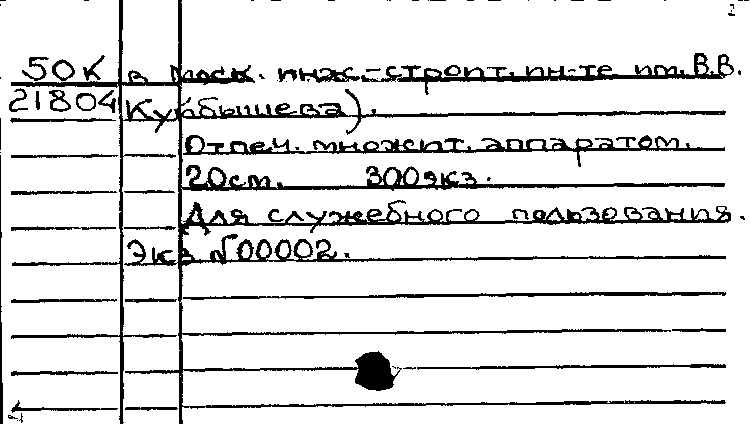 50К в Моск. инж.-строит. ин-те им. В.В.
21804 Куйбышева).
Отпеч. множит. аппаратом.
20см. 300экз.
Для служебного пользования.
Экз №00002.